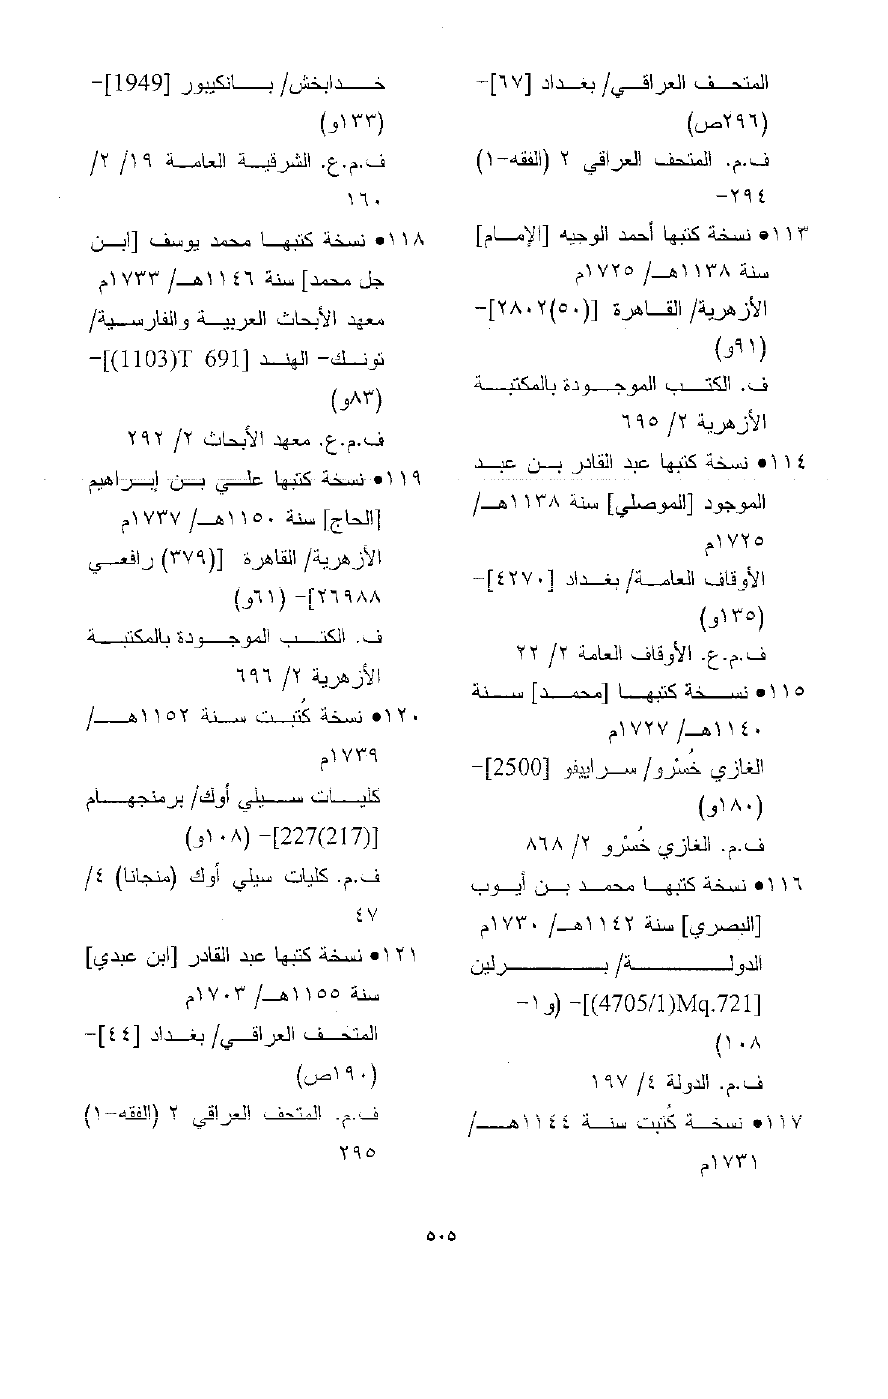 المتحف العراقي/ بغداد [٦٧]-
(٢٩٦ص)
ف.م. المتحف العراقي ٢ (الفقه-١)
٢٩٤-
١١٣• نسخة كتبها أحمد الوجيه [الإمام]
سنة ١١٣٨هـ/ ١٧٢٥م
الأزهرية/ القاهرة [(٥٠)٢٨٠٢]-
(٩١و)
ف. الكتب الموجودة بالمكتبة
الأزهرية ٢/ ٦٩٥
١١٤• نسخة كتبها عبد القادر بن عبد
الموجود [الموصلي] سنة ١١٣٨هـ/
١٧٢٥م
الأوقاف العامة/ بغداد [٤٢٧٠]-
(١٣٥و)
ف.م.ع. الأوقاف العامة ٢/ ٢٢
١١٥• نسخة كتبها [محمد] سنة
١١٤٠هـ/ ١٧٢٧م
الغازي خُسْرو/ سراييفو [2500]-
(١٨٠و)
ف.م. الغازي خُسْرو ٢/ ٨٦٨
١١٦• نسخة كتبها محمد بن أيوب
[البصري] سنة ١١٤٢هـ/ ١٧٣٠م
الدولة/ برلين
[Mq.721(4705/1)]- (و١-
١٠٨)
ف.م. الدولة ٤/ ١٩٧
١١٧• نسخة كُتبت سنة ١١٤٤هـ/
١٧٣١م
خدابخش/ بانكيبور [1949]-
(١٣٣و)
ف.م.ع. الشرقية العامة ١٩/ ٢/
١٦٠
١١٨• نسخة كتبها محمد يوسف [ابن
جل محمد] سنة ١١٤٦هـ/ ١٧٣٣م
معهد الأبحاث العربية والفارسية/
تونك- الهند [T 691(1103)]-
(٨٣و)
ف.م.ع. معهد الأبحاث ٢/ ٢٩٢
١١٩• نسخة كتبها علي بن إبراهيم
[الحاج] سنة ١١٥٠هـ/ ١٧٣٧م
الأزهرية/ القاهرة [(٣٧٩) رافعي
٢٦٩٨٨]- (٦١و)
ف. الكتب الموجودة بالمكتبة
الأزهرية ٢/ ٦٩٦
١٢٠• نسخة كُتبت سنة ١١٥٢هـ/
١٧٣٩م
كليات سيلي أوك/ برمنجهام
[227(217)]- (١٠٨و)
ف.م. كليات سيلي أوك (منجانا) ٤/
٤٧
١٢١• نسخة كتبها عبد القادر [ابن عبدي]
سنة ١١٥٥هـ/ ١٧٠٣م
المتحف العراقي/ بغداد [٤٤]-
(١٩٠ص)
ف.م. المتحف العراقي ٢ (الفقه-١)
٢٩٥
٥٠٥